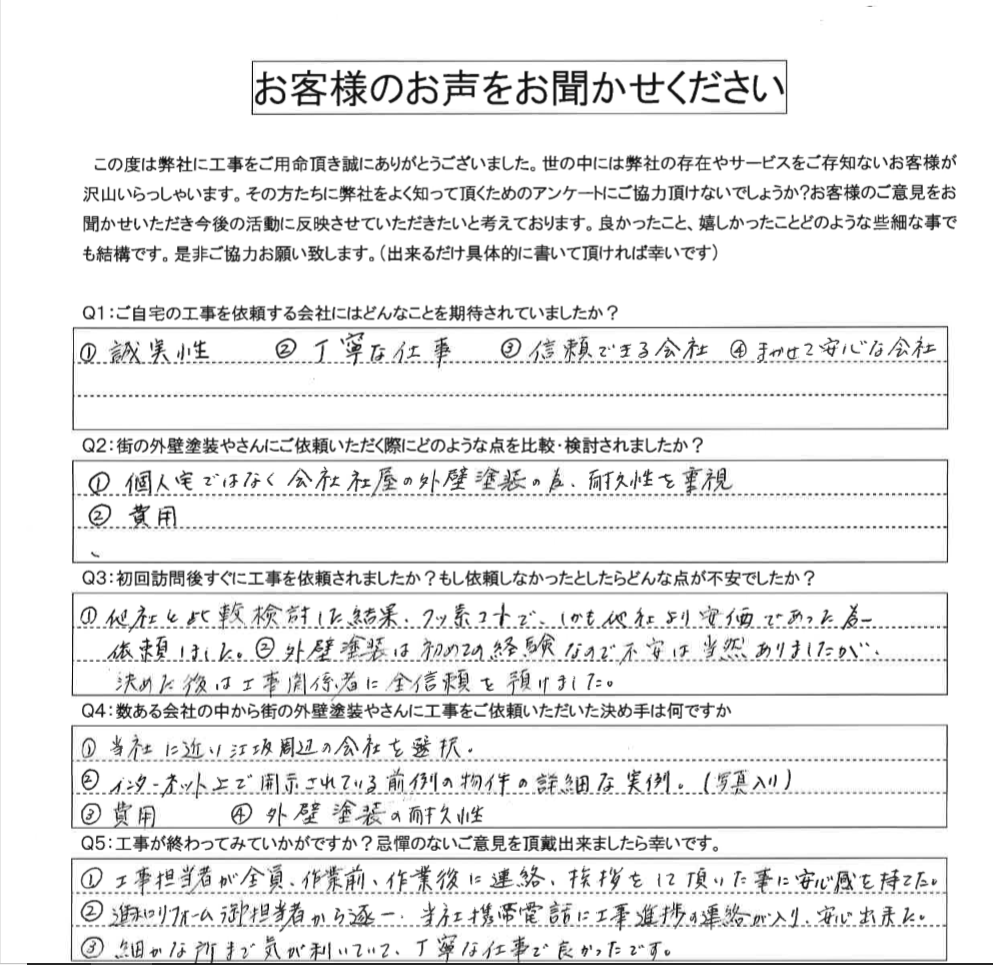 お客様のお声をお聞かせください
この度は弊社に工事をご用命頂き誠にありがとうございました。世の中には弊社の存在やサービスをご存知ないお客様が
沢山いらっしゃいます。その方たちに弊社をよく知って頂くためのアンケートにご協力頂けないでしょうか?お客様のご意見をお
聞かせいただき今後の活動に反映させていただきたいと考えております。良かったこと、嬉しかったことどのような些細な事で
も結構です。是非ご協力お願い致します。(出来るだけ具体的に書いて頂ければ幸いです)
Q1:ご自宅の工事を依頼する会社にはどんなことを期待されていましたか?
① 誠実性 ② 丁寧な仕事 ③ 信頼できる会社 ④ まかせて安心な会社
Q2:街の外壁塗装やさんにご依頼いただく際にどのような点を比較・検討されましたか?
① 個人宅ではなく会社社屋の外壁塗装の為、耐久性を重視
② 費用
Q3:初回訪問後すぐに工事を依頼されましたか?もし依頼しなかったとしたらどんな点が不安でしたか?
① 他社と比較検討した結果、フッ素コートで、しかも他社より安価であった為
依頼しました。② 外壁塗装は初めての経験なので不安は当然ありましたが、
決めた後は工事関係者に全信頼を預けました。
Q4:数ある会社の中から街の外壁塗装やさんに工事をご依頼いただいた決め手は何ですか
① 当社に近い江坂周辺の会社を選択。
② インターネット上で開示されている前例の物件の詳細な実例。(写真入り)
③ 費用 ④ 外壁塗装の耐久性
Q5:工事が終わってみていかがですか?忌憚のないご意見を頂戴出来ましたら幸いです。
① 工事担当者が全員、作業前、作業後に連絡、挨拶をして頂いた事に安心感を持てた。
② 進和リフォーム御担当者から逐一、当社携帯電話に工事進捗の連絡が入り、安心出来た。
③ 細かな所まで気が利いていて、丁寧な仕事で良かったです。